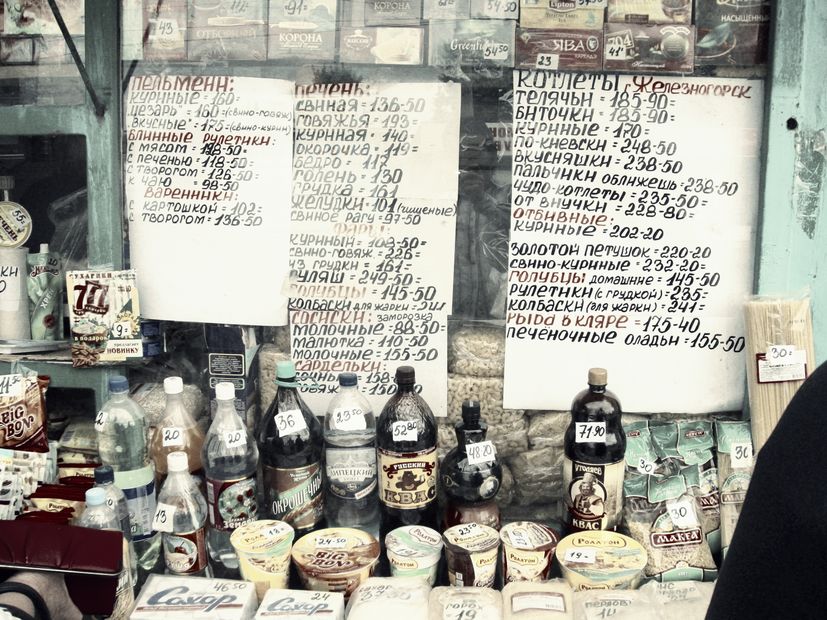 КОРОНА
КОРОНА
Lipton
43
Greenfield
54-50
23
ЯВА
НАСЫЩЕННЫЙ
ПЕЛЬМЕНИ:
КУРИНЫЕ = 160=
ЦЕЗАРЬ = 160=(СВИНО-ГОВЯЖ)
ВКУСНЫЕ = 175=(СВИНО-КУРИН)
БЛИННЫЕ РУЛЕТИКИ:
С МЯСОМ = 118-50=
С ПЕЧЕНЬЮ = 118-50=
С ТВОРОГОМ = 126-50=
К ЧАЮ = 98-50=
ВАРЕННИКИ:
С КАРТОШКОЙ = 102=
С ТВОРОГОМ = 136-50=
ПЕЧЕНЬ:
СВИНАЯ = 136-50
ГОВЯЖЬЯ = 193=
КУРИННАЯ = 140=
ОКОРОЧКА = 119=
БЕДРО = 117
ГОЛЕНЬ = 130
ГРУДКА = 161
ЖЕЛУДКИ = 101(чищеные)
СВИНОЕ РАГУ = 97-50
ФАРШ:
КУРИННЫЙ = 103-50=
СВИНО-ГОВЯЖ = 226=
ИЗ ГРУДКИ = 161=
ГУЛЯШ = 249-50=
ГОЛУБЦЫ = 145-50
КОЛБАСКИ ДЛЯ ЖАРКИ = 241
СОСИСКИ: ЗАМОРОЗКА
МОЛОЧНЫЕ = 88-50=
МАЛЮТКА = 110-50
МОЛОЧНЫЕ = 155-50
САРДЕЛЬКИ:
СОЧНЫЕ = 158
ГОВЯЖ = 150
КОТЛЕТЫ г. Железногорск
ТЕЛЯЧЬИ = 185-90=
БИТОЧКИ = 185-90=
КУРИННЫЕ = 170=
ПО-КИЕВСКИ = 248-50
ВКУСНЯШКИ = 238-50
ПАЛЬЧИКИ ОБЛИЖЕШЬ = 238-50
ЧУДО-КОТЛЕТЫ = 235-50=
ОТ ВНУЧКИ = 228-80=
ОТБИВНЫЕ:
КУРИННЫЕ = 202-20
ЗОЛОТОЙ ПЕТУШОК = 220-20
СВИНО-КУРИННЫЕ = 232-20=
ГОЛУБЦЫ ДОМАШНИЕ = 145-50
РУЛЕТИКИ (С ГРУДКОЙ) = 235=
КОЛБАСКИ (ДЛЯ ЖАРКИ) = 241=
РЫБА В КЛЯРЕ = 175-40
ПЕЧЕНОЧНЫЕ ОЛАДЬИ = 155-50
55
СУХАРИКИ
777
9=
в подарок
НОВИНКУ
30=
BIG BON
20
20
36
23 50
52 80
48-20
71 90
30
30
30
13
ОКРОШЕЧНЫЙ
ЛИПЕЦКИЙ
РУССКИЙ
КВАС
КВАС
МАКФА
18=
24-50
BIG BON
РОЛЛТОН
РОЛЛТОН
19-
РОЛЛТОН
Сахар
46 50
Сахар
24
ГОРОХ
19